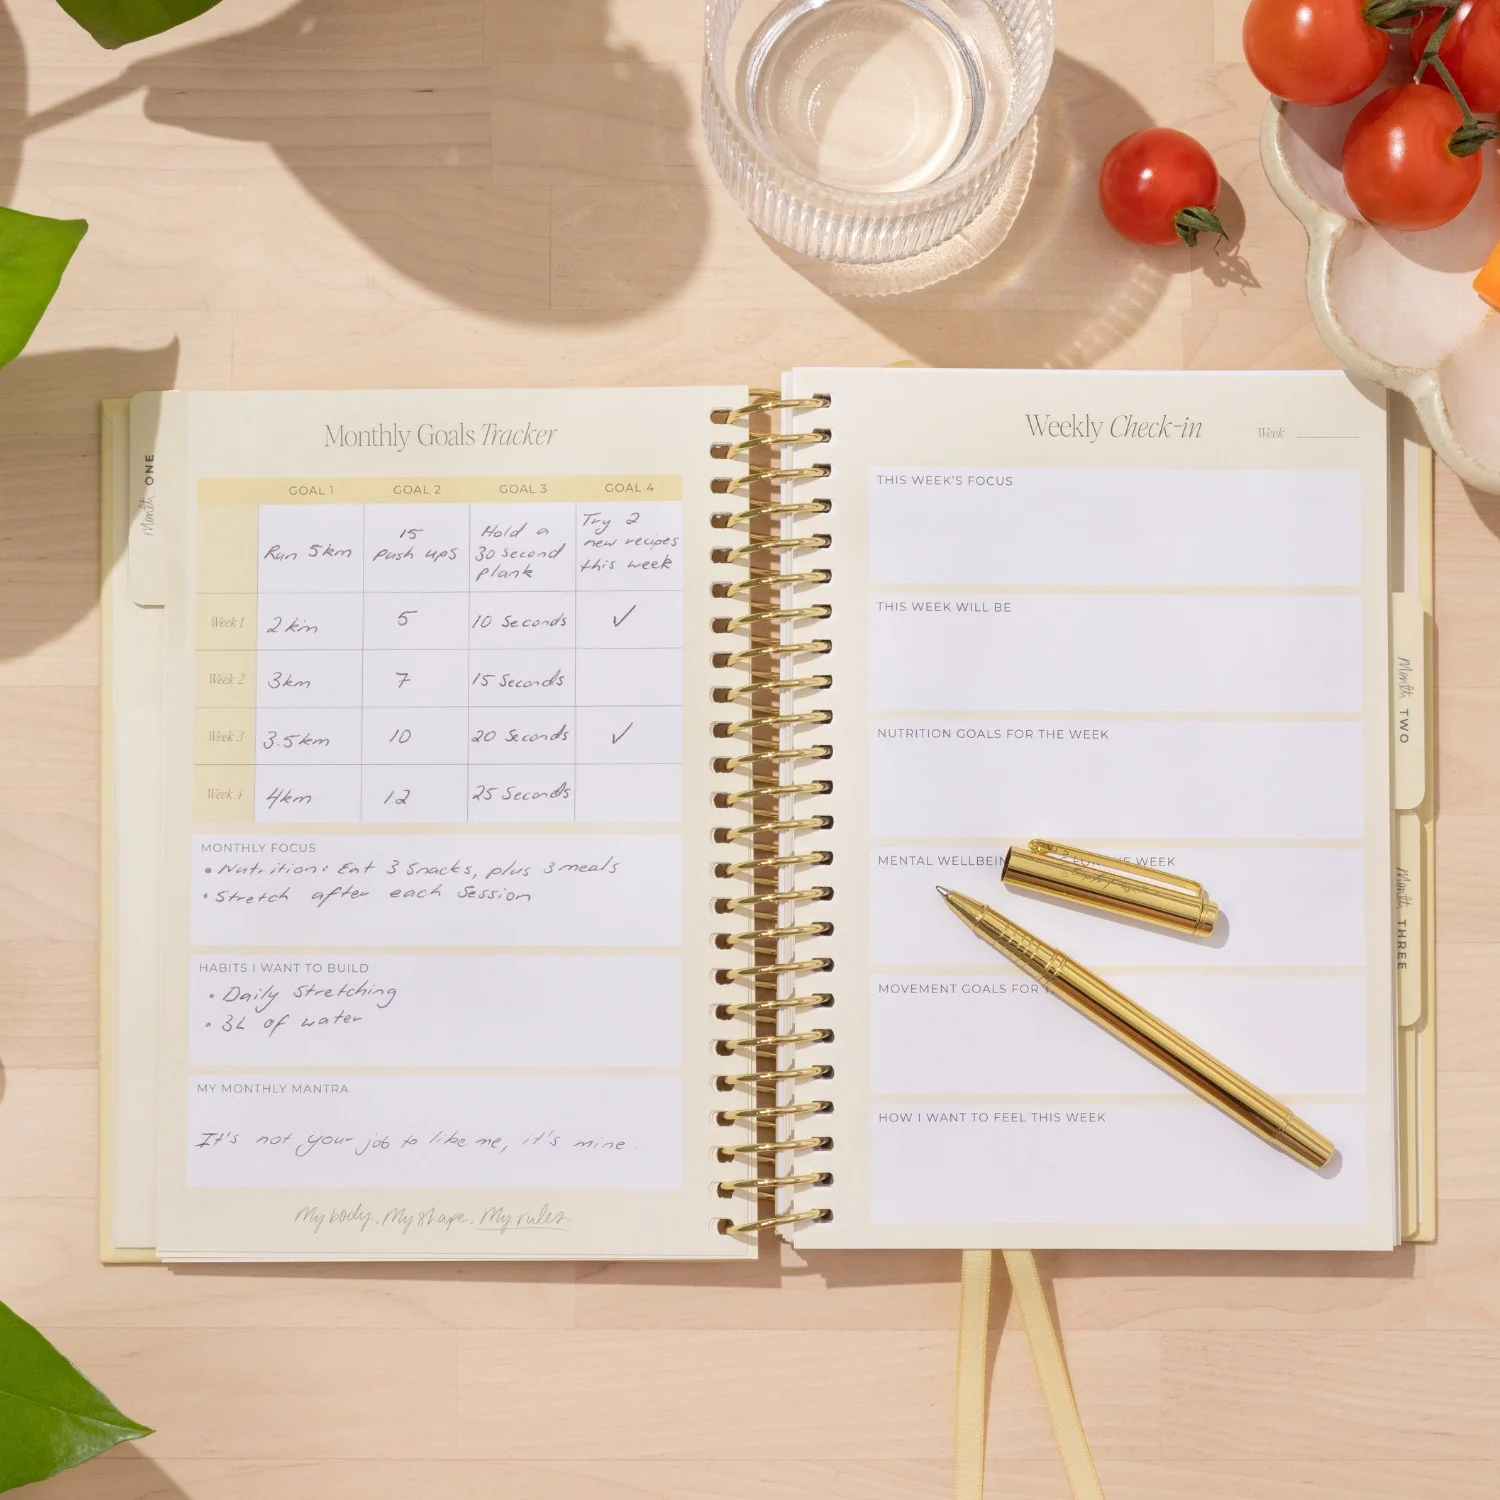 Month ONE
Monthly Goals Tracker
GOAL 1 GOAL 2 GOAL 3 GOAL 4
Run 5km
15
push ups
Hold a
30 second
plank
Try 2
new recipes
this week
Week 1 2 km 5 10 Seconds ✓
Week 2 3km 7 15 Seconds
Week 3 3.5km 10 20 Seconds ✓
Week 4 4km 12 25 Seconds
MONTHLY FOCUS
• Nutrition: Eat 3 Snacks, plus 3 meals
• Stretch after each Session
HABITS I WANT TO BUILD
• Daily Stretching
• 3L of water
MY MONTHLY MANTRA
It's not your job to like me, it's mine.
My body. My shape. My rules.
Weekly Check-in
Week
THIS WEEK'S FOCUS
THIS WEEK WILL BE
NUTRITION GOALS FOR THE WEEK
MENTAL WEEK
MOVEMENT GOALS FOR
HOW I WANT TO FEEL THIS WEEK
Month TWO
Month THREE